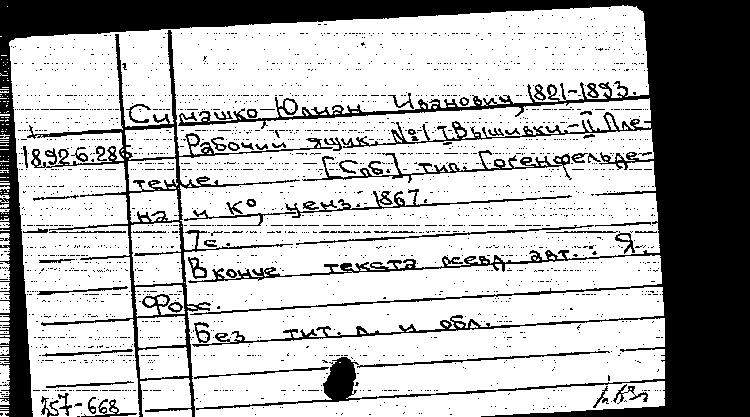 Симашко, Юлиан Иванович, 1821-1893.
18.92.6.286
Рабочий ящик. №1 I Вышивки.-II. Пле-
тение. [Спб.], тип. Гогенфельде-
на и К⁰, ценз. 1867.
7с.
В конце текста псевд. авт.: Я.
Фох.
Без тит. л. и обл.
257-668